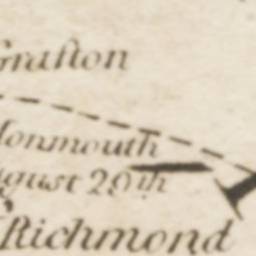 Graſton
Monmouth
August 29th
Richmond